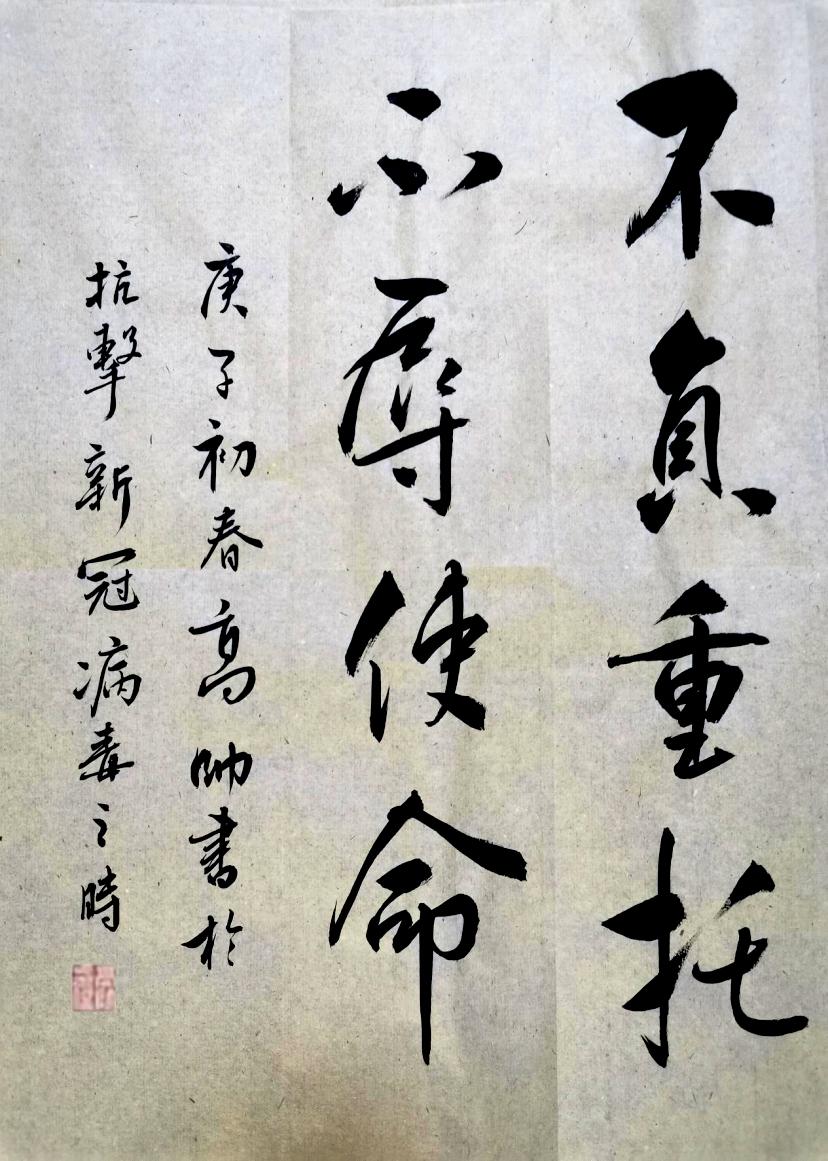 不負重托
不辱使命
庚子初春高帥書於
抗擊新冠病毒之時